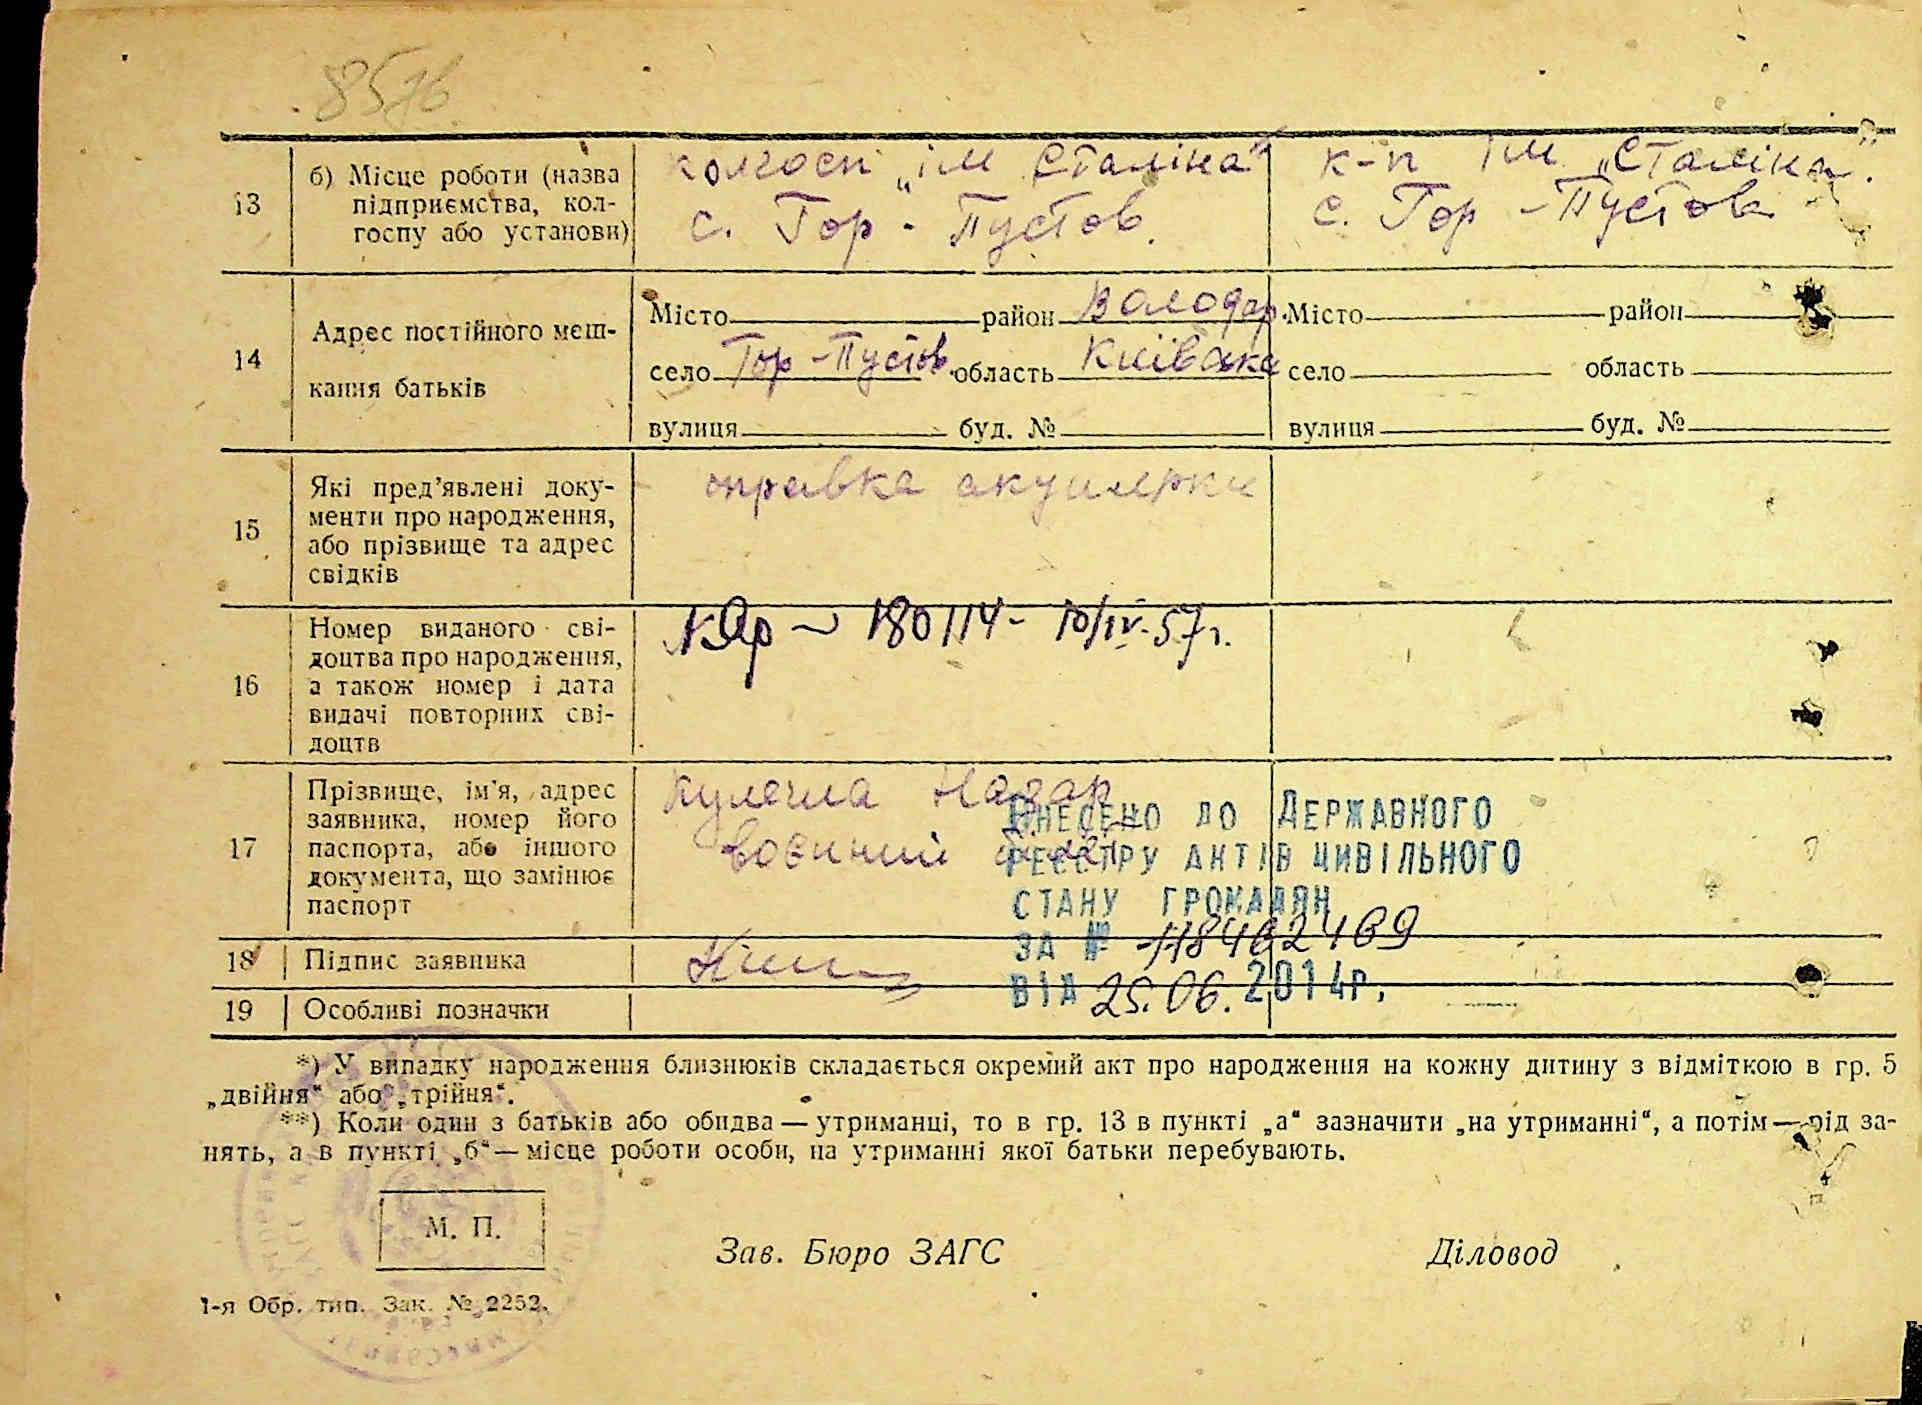 8576
13
б) Місце роботи (назва
підприємства, кол-
госпу або установи)
колгосп „ім Сталіна“
с. Гор - Пустов.
к-п ім „Сталіна“.
с. Гор - Пустов
14
Адрес постійного меш-
кання батьків
Місто район Володар.
село Гор - Пустов. область Київська
вулиця буд. №
Місто район
село область
вулиця буд. №
15
Які пред’явлені доку-
менти про народження,
або прізвище та адрес
свідків
справка акушерки
16
Номер виданого сві-
доцтва про народження,
а також номер і дата
видачі повторних сві-
доцтв
180114 - 10/IV-57г.
17
Прізвище, ім’я, адрес
заявника, номер його
паспорта, або іншого
документа, що замінює
паспорт
Назар
воєнний
ВНЕСЕНО ДО ДЕРЖАВНОГО
РЕЄСТРУ АКТІВ ЦИВІЛЬНОГО
СТАНУ ГРОМАДЯН
ЗА №
ВІД 25.06.2014р.
18
Підпис заявника
19
Особливі позначки
*) У випадку народження близнюків складається окремий акт про народження на кожну дитину з відміткою в гр. 5
„двійня“ або „трійня“.
**) Коли один з батьків або обидва — утриманці, то в гр. 13 в пункті „а“ зазначити „на утриманні“, а потім — рід за-
нять, а в пункті „б“ — місце роботи особи, на утриманні якої батьки перебувають.
М. П.
Зав. Бюро ЗАГС
Діловод
1-я Обр. тип. Зак. № 2252.